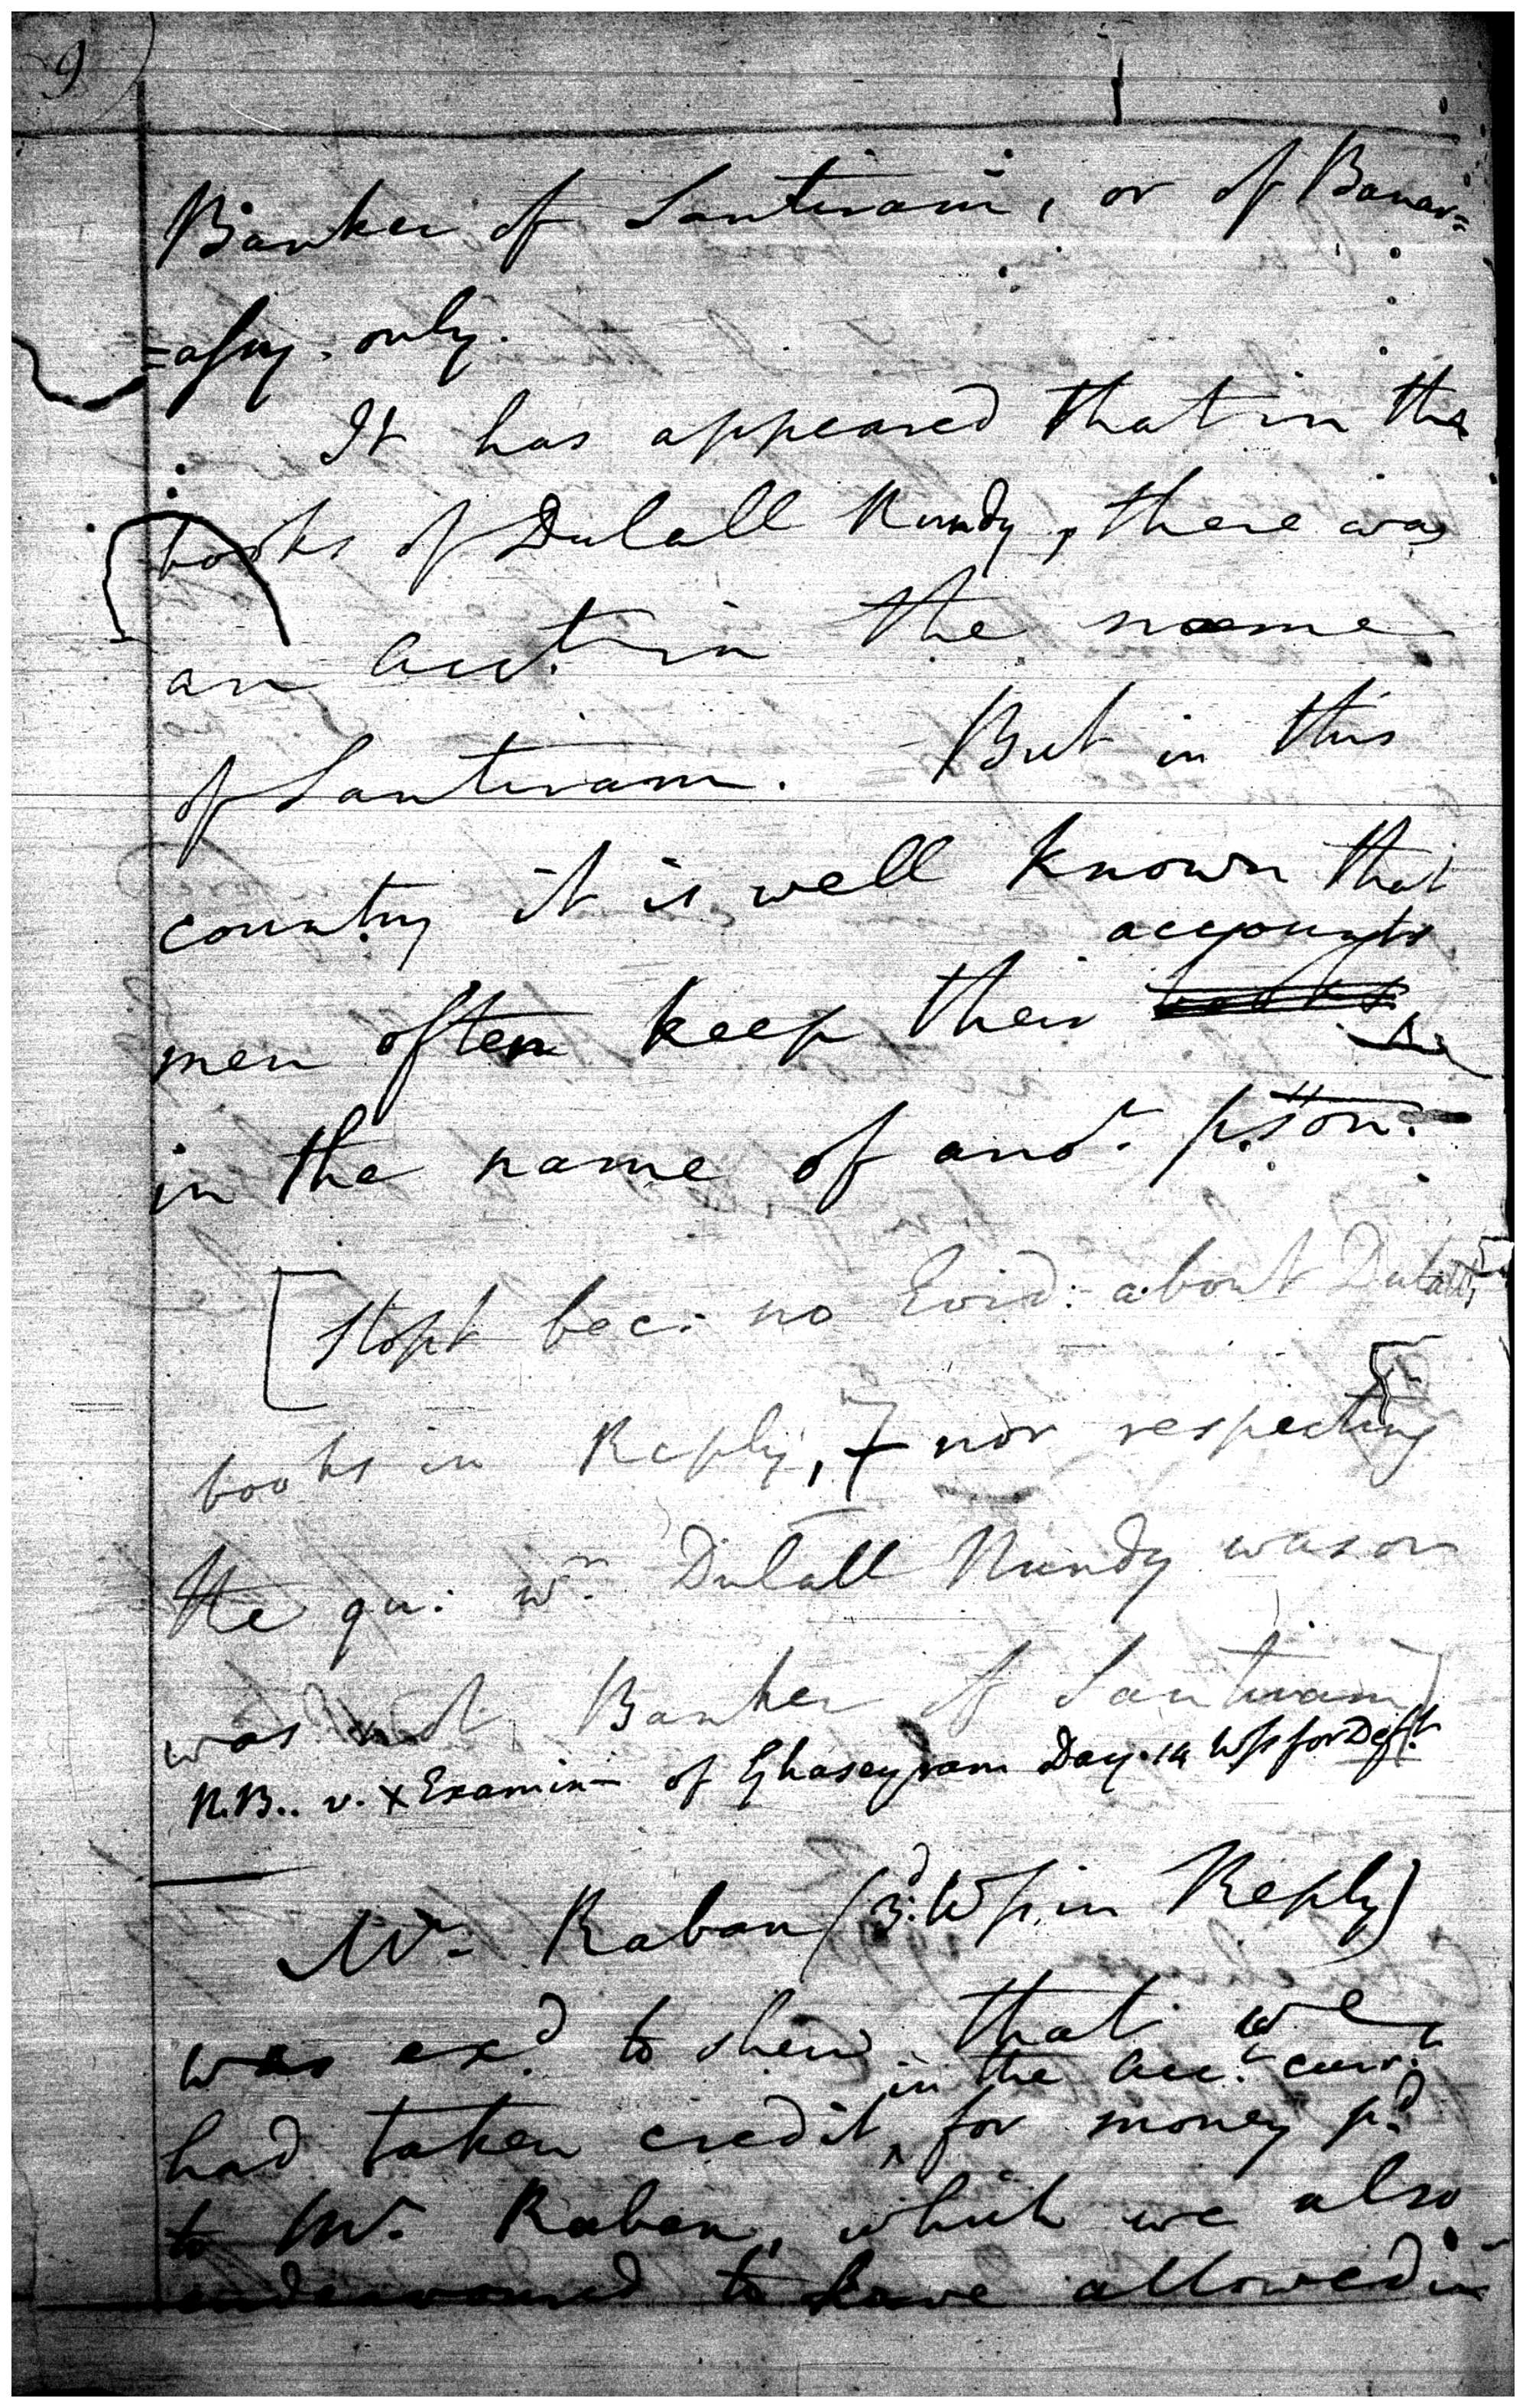 9
Banker of Santiram, or of Banar=
=assy. only.
It has appeared that in the
books of Dulall Nundy, there was
an acct. in the name
of Santiram. But in this
country it is well known that
accounts
men often keep their books
in the name of anor. p.son.
[Stopt bec: no Evid: about Dulall's
books in Reply, + nor respecting
the qu: wr. Dulall Nundy was or
was not Banker of Santiram]
N.B.. v. x Examin- of Ghaseyram Day. 14 Wss for Deft.
Mr. Raban (3d. Wss. in Reply)
was exd to shew that we
in the acct. currt.
had taken credit ^ for money pd.
to Mr. Raban, which we also
endeavoured to have allowed in